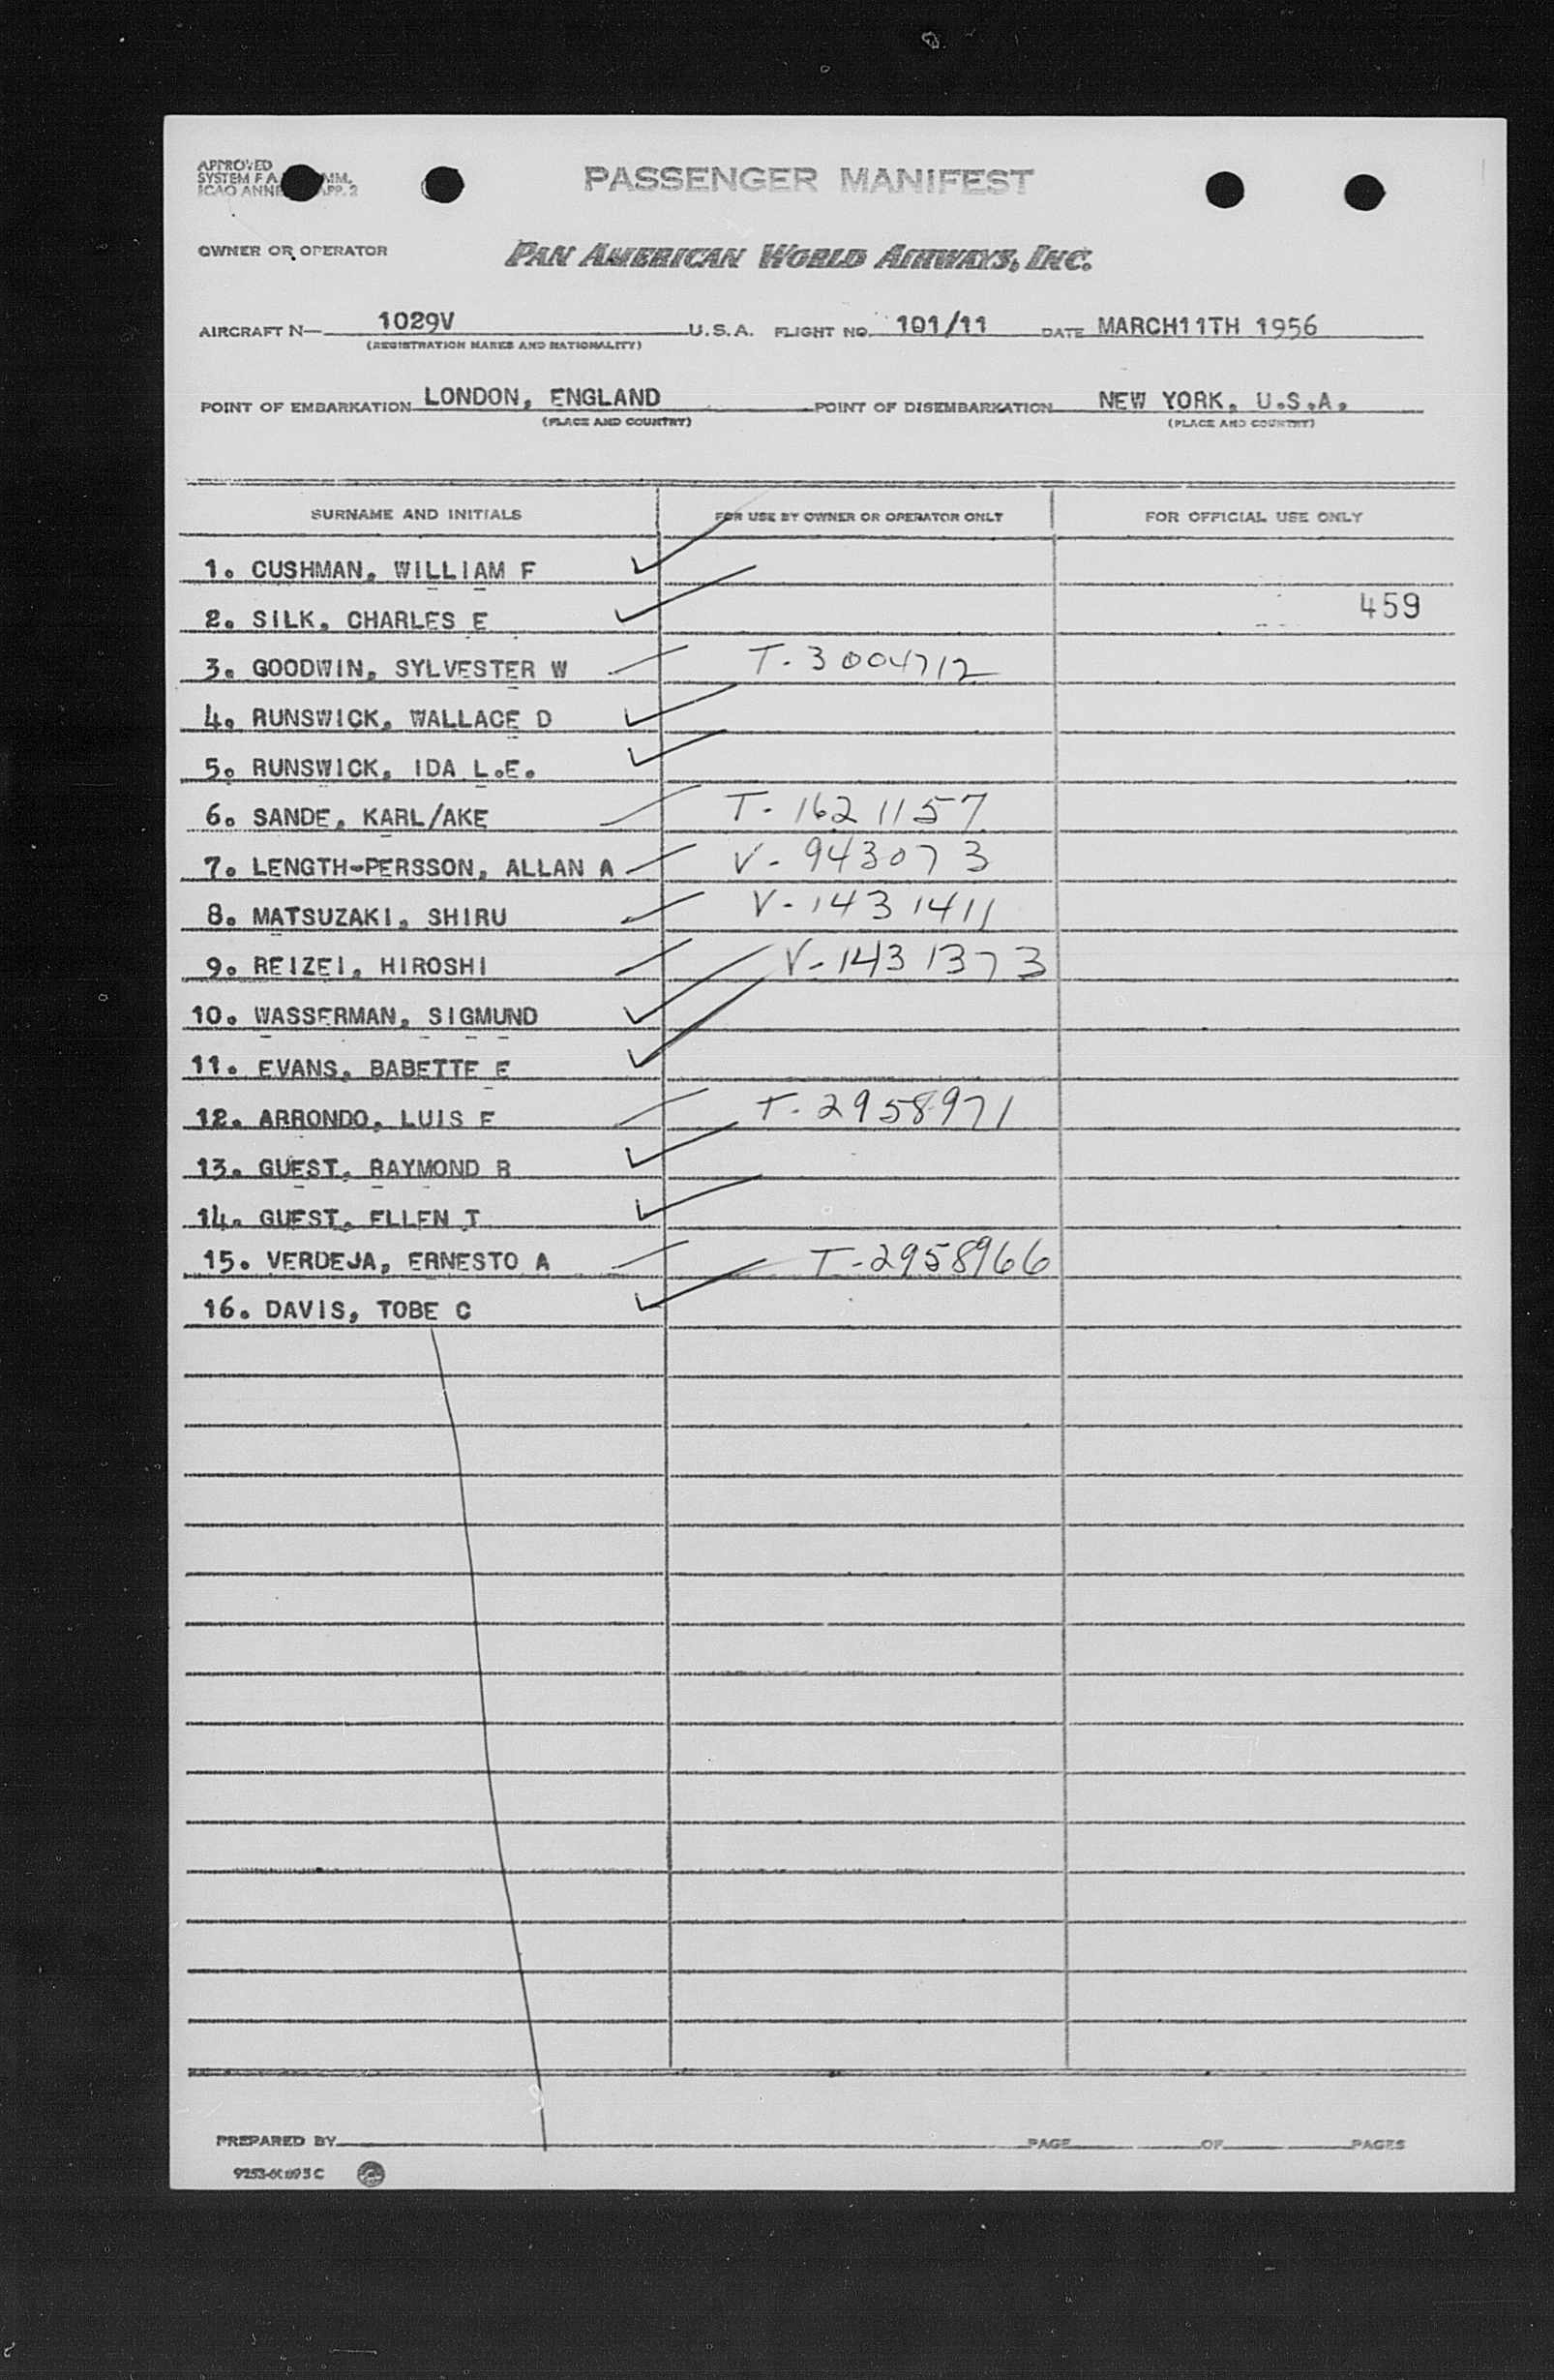 APPROVED
SYSTEM F A MM.
ICAO ANNE APP. 2
PASSENGER MANIFEST
OWNER OR OPERATOR PAN AMERICAN WORLD AIRWAYS, INC.
AIRCRAFT N— 1029V U.S.A. FLIGHT NO. 101/11 DATE MARCH11TH 1956
(REGISTRATION MARKS AND NATIONALITY)
POINT OF EMBARKATION LONDON, ENGLAND POINT OF DISEMBARKATION NEW YORK, U.S.A.
(PLACE AND COUNTRY) (PLACE AND COUNTRY)
SURNAME AND INITIALS FOR USE BY OWNER OR OPERATOR ONLY FOR OFFICIAL USE ONLY
1. CUSHMAN, WILLIAM F
2. SILK, CHARLES E 459
3. GOODWIN, SYLVESTER W T-3004712
4. RUNSWICK, WALLACE D
5. RUNSWICK, IDA L.E.
6. SANDE, KARL/AKE T-1621157
7. LENGTH-PERSSON, ALLAN A V-943073
8. MATSUZAKI, SHIRU V-1431411
9. REIZEI, HIROSHI V-1431373
10. WASSERMAN, SIGMUND
11. EVANS, BABETTE E
12. ARRONDO, LUIS E T-2958971
13. GUEST, RAYMOND R
14. GUEST, ELLEN T
15. VERDEJA, ERNESTO A T-2958966
16. DAVIS, TOBE C
PREPARED BY PAGE OF PAGES